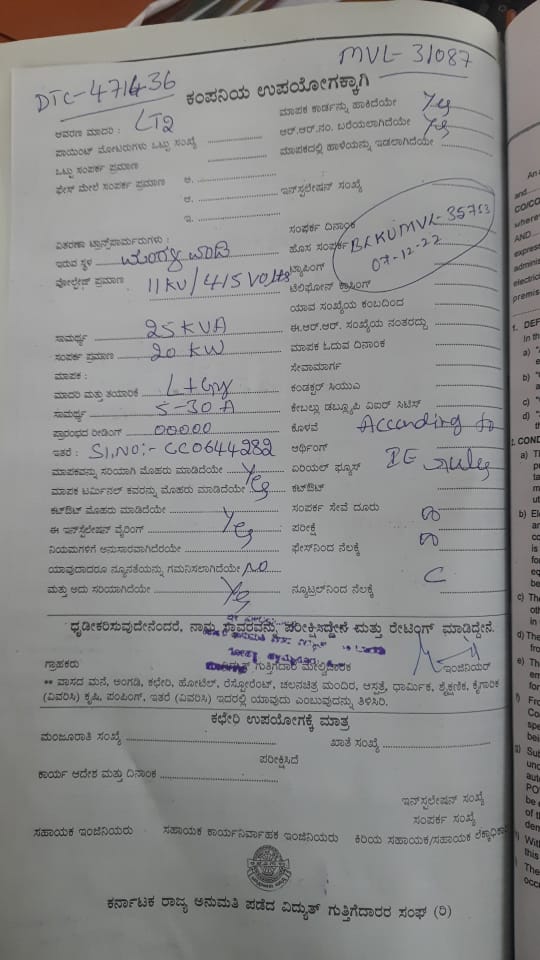 DTC-471436
MVL-31087
ಕಂಪನಿಯ ಉಪಯೋಗಕ್ಕಾಗಿ
ಆವರಣ ಮಾದರಿ : LT2
ಮಾಪಕ ಕಾರ್ಡನ್ನು ಹಾಕಿದೆಯೇ Yes
ಪಾಯಿಂಟ್ ಮೋಟರುಗಳು ಒಟ್ಟು ಸಂಖ್ಯೆ
ಆರ್.ಆರ್.ನಂ. ಬರೆಯಲಾಗಿದೆಯೇ Yes
ಒಟ್ಟು ಸಂಪರ್ಕ ಪ್ರಮಾಣ
ಮಾಪಕದಲ್ಲಿ ಹಾಳೆಯನ್ನು ಇಡಲಾಗಿದೆಯೇ
ಫೇಸ್ ಮೇಲೆ ಸಂಪರ್ಕ ಪ್ರಮಾಣ
ಅ.
ಆ. ಇನ್‌ಸ್ಟಲೇಷನ್ ಸಂಖ್ಯೆ
ಇ.
ಸಂಪರ್ಕ ದಿನಾಂಕ
ವಿತರಣಾ ಟ್ರಾನ್ಸ್‌ಫಾರ್ಮರುಗಳು :
ಹೊಸ ಸಂಪರ್ಕ BLKUMVL-35713
07-12-22
ಇರುವ ಸ್ಥಳ
ಟ್ಯಾಪಿಂಗ್
ವೋಲ್ಟೇಜ್ ಪ್ರಮಾಣ 11KV/415 Volts
ಟೆಲಿಫೋನ್ ಕ್ರಾಸಿಂಗ್
ಯಾವ ಸಂಖ್ಯೆಯ ಕಂಬದಿಂದ
ಸಾಮರ್ಥ್ಯ 25KVA
ಈ.ಆರ್.ಆರ್. ಸಂಖ್ಯೆಯ ನಂತರದ್ದು
ಸಂಪರ್ಕ ಪ್ರಮಾಣ 20 KW
ಮಾಪಕ ಓದುವ ದಿನಾಂಕ
ಮಾಪಕ :
ಸೇವಾಮಾರ್ಗ
ಮಾದರಿ ಮತ್ತು ತಯಾರಿಕೆ L+Gy
ಕಂಡಕ್ಟರ್ ಸಿಯುಎ
ಸಾಮರ್ಥ್ಯ 5-30A
ಕೇಬಲ್ಲು ಡಬ್ಲ್ಯೂಪಿ ಏಐರ್ ಸಿಟಿಸ್
ಪ್ರಾರಂಭದ ರೀಡಿಂಗ್ 00000
ಕೊಳವೆ According to
ಇತರೆ : Sl,NO:- CC0644282
ಅರ್ಥಿಂಗ್
ಮಾಪಕವನ್ನು ಸರಿಯಾಗಿ ಮೊಹರು ಮಾಡಿದೆಯೇ Yes
ಏರಿಯಲ್ ಫ್ಯೂಸ್ IE rules
ಮಾಪಕ ಟರ್ಮಿನಲ್ ಕವರನ್ನು ಮೊಹರು ಮಾಡಿದೆಯೇ Yes
ಕಟ್‌ಔಟ್
ಕಟ್‌ಔಟ್ ಮೊಹರು ಮಾಡಿದೆಯೇ
ಸಂಪರ್ಕ ಸೇವೆ ದೂರು
ಈ ಇನ್‌ಸ್ಟಲೇಷನ್ ವೈರಿಂಗ್ Yes
ಪರೀಕ್ಷೆ ∞
ನಿಯಮಗಳಿಗೆ ಅನುಸಾರವಾಗಿದೆರಯೇ
ಫೇಸ್‌ನಿಂದ ನೆಲಕ್ಕೆ ∞
ಯಾವುದಾದರೂ ನ್ಯೂನತೆಯನ್ನು ಗಮನಿಸಲಾಗಿದೆಯೇ NO
ಮತ್ತು ಅದು ಸರಿಯಾಗಿದೆಯೇ Yes
ನ್ಯೂಟ್ರಲ್‌ನಿಂದ ನೆಲಕ್ಕೆ C
ಧೃಡೀಕರಿಸುವುದೇನೆಂದರೆ, ನಾನು ಸ್ಥಾವರವನ್ನು ಪರೀಕ್ಷಿಸಿದ್ದೇನೆ ಮತ್ತು ರೇಟಿಂಗ್ ಮಾಡಿದ್ದೇನೆ.
ಗ್ರಾಹಕರು ವಿದ್ಯುತ್ ಗುತ್ತಿಗೆದಾರ ಮೇಲ್ವಿಚಾರಕ ಇಂಜಿನಿಯರ್
** ವಾಸದ ಮನೆ, ಅಂಗಡಿ, ಕಛೇರಿ, ಹೋಟೆಲ್, ರೆಸ್ಟೋರೆಂಟ್, ಚಲನಚಿತ್ರ ಮಂದಿರ, ಆಸ್ಪತ್ರೆ, ಧಾರ್ಮಿಕ, ಶೈಕ್ಷಣಿಕ, ಕೈಗಾರಿಕೆ
(ವಿವರಿಸಿ) ಕೃಷಿ, ಪಂಪಿಂಗ್, ಇತರೆ (ವಿವರಿಸಿ) ಇದರಲ್ಲಿ ಯಾವುದು ಎಂಬುವುದನ್ನು ತಿಳಿಸಿರಿ.
ಕಛೇರಿ ಉಪಯೋಗಕ್ಕೆ ಮಾತ್ರ
ಮಂಜೂರಾತಿ ಸಂಖ್ಯೆ ಖಾತೆ ಸಂಖ್ಯೆ
ಪರೀಕ್ಷಿಸಿದೆ
ಕಾರ್ಯ ಆದೇಶ ಮತ್ತು ದಿನಾಂಕ
ಇನ್‌ಸ್ಟಲೇಷನ್ ಸಂಖ್ಯೆ
ಸಂಪರ್ಕ ಸಂಖ್ಯೆ
ಸಹಾಯಕ ಇಂಜಿನಿಯರು ಸಹಾಯಕ ಕಾರ್ಯನಿರ್ವಾಹಕ ಇಂಜಿನಿಯರು ಕಿರಿಯ ಸಹಾಯಕ/ಸಹಾಯಕ ಲೆಕ್ಕಾಧಿಕಾರಿ
ಕರ್ನಾಟಕ ರಾಜ್ಯ ಅನುಮತಿ ಪಡೆದ ವಿದ್ಯುತ್ ಗುತ್ತಿಗೆದಾರರ ಸಂಘ (ರಿ)